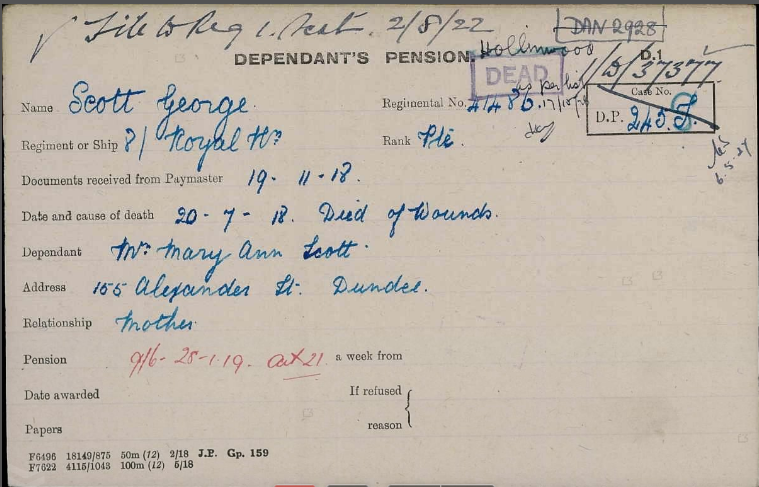 File to Reg 1. Scot. 2/8/22
DAN 2928
DEPENDANT'S PENSION.
Hollinwood
D.1
DEAD
1/D/37377
as per list
17/10/
Name Scott George.
Regimental No. 41486.
Case No.
D.P. 245. S.
Regiment or Ship 8/ Royal Hrs
Rank Pte.
6.5.27
Documents received from Paymaster 19 - 11 - 18.
Date and cause of death 20 - 7 - 18. Died of Wounds.
Dependant Mrs Mary Ann Scott.
Address 155 Alexander St. Dundee.
Relationship Mother.
Pension 9/6 - 28-1-19. Art 21. a week from
Date awarded
If refused
reason
Papers
F6496 18149/875 50m (12) 2/18 J.P. Gp. 159
F7622 4115/1043 100m (12) 5/18